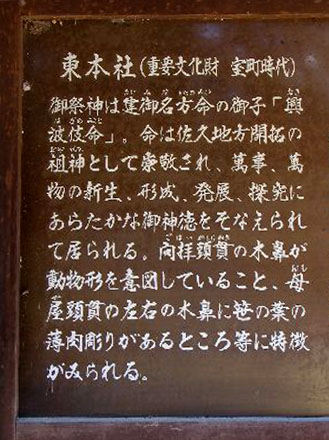 東本社(重要文化財 室町時代)
御祭神は建御名方命の御子「興
波岐命」。命は佐久地方開拓の
祖神として崇敬され、萬事、萬
物の新生、形成、発展、探究に
あらたかな御神徳をそなえられ
て居られる。向拝頭貫の木鼻が
動物形を意図していること、母
屋頭貫の左右の木鼻に笹の葉の
薄肉彫りがあるところ等に特徴
がみられる。